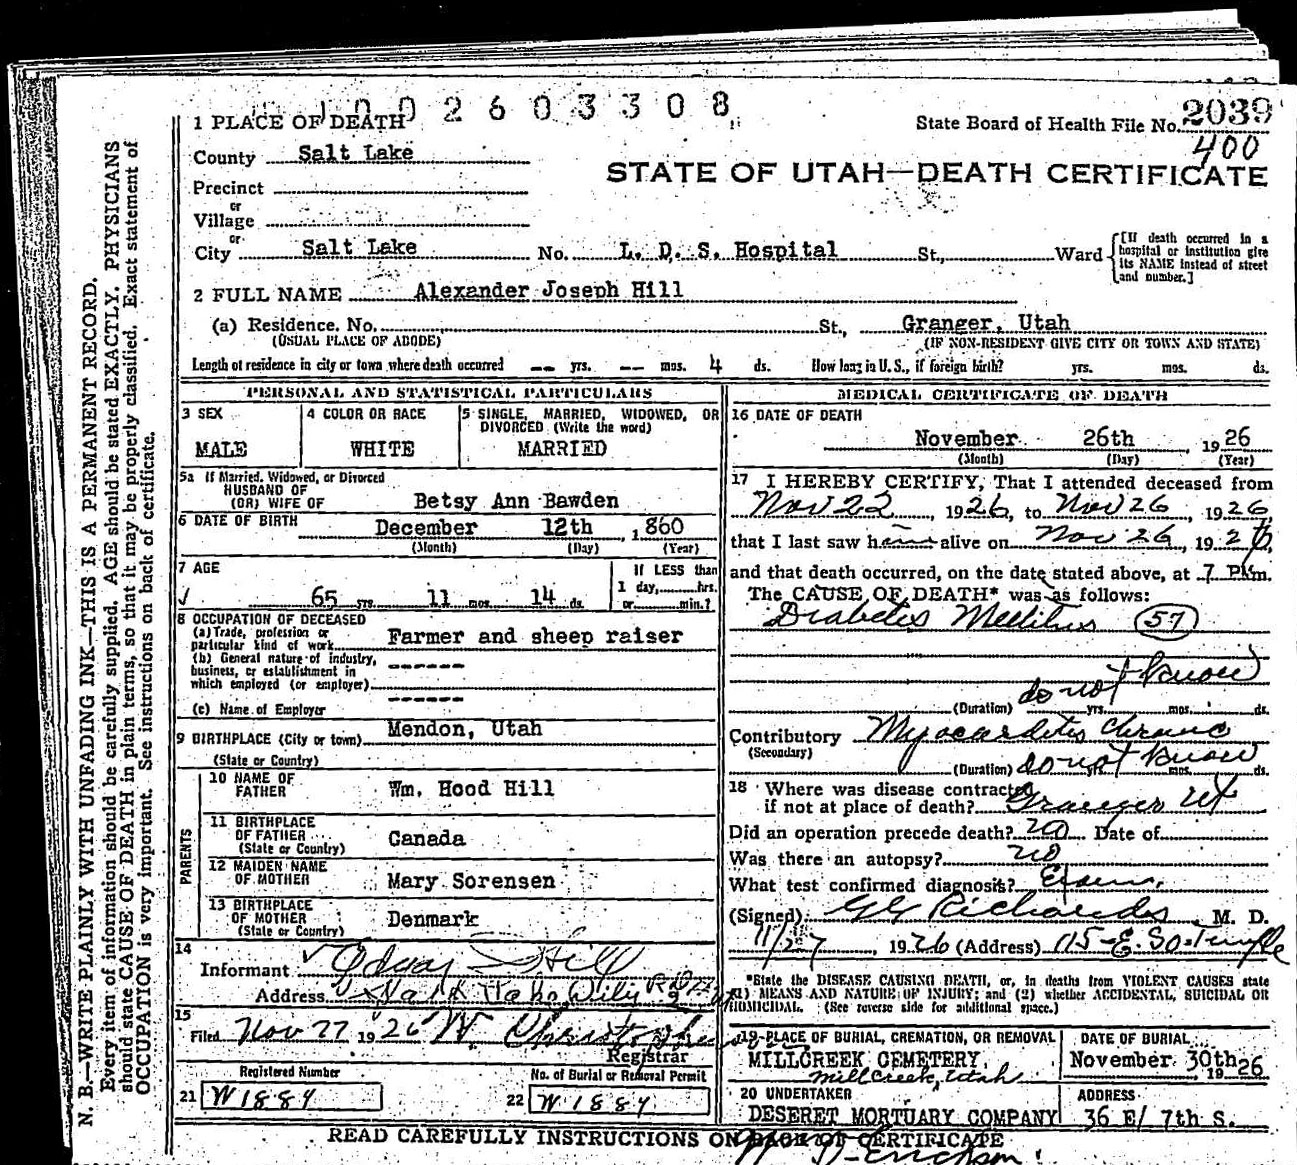 1002603308
1 PLACE OF DEATH
State Board of Health File No. 2039
400
County Salt Lake
STATE OF UTAH—DEATH CERTIFICATE
Precinct
or
Village
or
City Salt Lake No. L. D. S. Hospital St., Ward [If death occurred in a hospital or institution give its NAME instead of street and number.]
2 FULL NAME Alexander Joseph Hill
(a) Residence. No. St., Granger, Utah
(USUAL PLACE OF ABODE) (IF NON-RESIDENT GIVE CITY OR TOWN AND STATE)
Length of residence in city or town where death occurred -- yrs. -- mos. 4 ds. How long in U. S., if foreign birth? yrs. mos. ds.
PERSONAL AND STATISTICAL PARTICULARS
3 SEX
MALE
4 COLOR OR RACE
WHITE
5 SINGLE, MARRIED, WIDOWED, OR
DIVORCED (Write the word)
MARRIED
5a If Married, Widowed, or Divorced
HUSBAND OF
(OR) WIFE OF Betsy Ann Bawden
6 DATE OF BIRTH December 12th, 1860
(Month) (Day) (Year)
7 AGE
65 yrs. 11 mos. 14 ds.
If LESS than
1 day, hrs.
or min.?
8 OCCUPATION OF DECEASED
(a) Trade, profession or
particular kind of work Farmer and sheep raiser
(b) General nature of industry,
business, or establishment in
which employed (or employer) ------
(c) Name of Employer ------
9 BIRTHPLACE (City or town) Mendon, Utah
(State or Country)
PARENTS
10 NAME OF
FATHER Wm. Hood Hill
11 BIRTHPLACE
OF FATHER
(State or Country) Canada
12 MAIDEN NAME
OF MOTHER Mary Sorensen
13 BIRTHPLACE
OF MOTHER
(State or Country) Denmark
14
Informant Hill
Address
15
Filed Nov 27 1926 W.
Registrar
Registered Number
21 W1884
No. of Burial or Removal Permit
22 W1884
MEDICAL CERTIFICATE OF DEATH
16 DATE OF DEATH
November 26th, 1926
(Month) (Day) (Year)
17 I HEREBY CERTIFY, That I attended deceased from
Nov 22, 1926, to Nov 26, 1926,
that I last saw him alive on Nov 26, 1926,
and that death occurred, on the date stated above, at 7 P.m.
The CAUSE OF DEATH* was as follows:
Diabetes Mellitus (57)
do not know
(Duration) yrs. mos. ds.
Contributory Myocarditis Chronic
(Secondary)
(Duration) do not know yrs. mos. ds.
18 Where was disease contracted
if not at place of death? Granger Ut
Did an operation precede death? no Date of
Was there an autopsy? no
What test confirmed diagnosis? Exam.
(Signed) Richards, M. D.
11/27, 1926 (Address) 115 E. So. Temple
*State the DISEASE CAUSING DEATH, or, in deaths from VIOLENT CAUSES state
(1) MEANS AND NATURE OF INJURY; and (2) whether ACCIDENTAL, SUICIDAL OR
HOMICIDAL. (See reverse side for additional space.)
19 PLACE OF BURIAL, CREMATION, OR REMOVAL
MILLCREEK CEMETERY,
Millcreek, Utah
DATE OF BURIAL
November 30th 1926
20 UNDERTAKER
DESERET MORTUARY COMPANY
ADDRESS
36 E/ 7th S.
READ CAREFULLY INSTRUCTIONS ON BACK OF CERTIFICATE
N. B.—WRITE PLAINLY WITH UNFADING INK—THIS IS A PERMANENT RECORD.
Every item of information should be carefully supplied. AGE should be stated EXACTLY. PHYSICIANS
should state CAUSE OF DEATH in plain terms, so that it may be properly classified. Exact statement of
OCCUPATION is very important. See instructions on back of certificate.